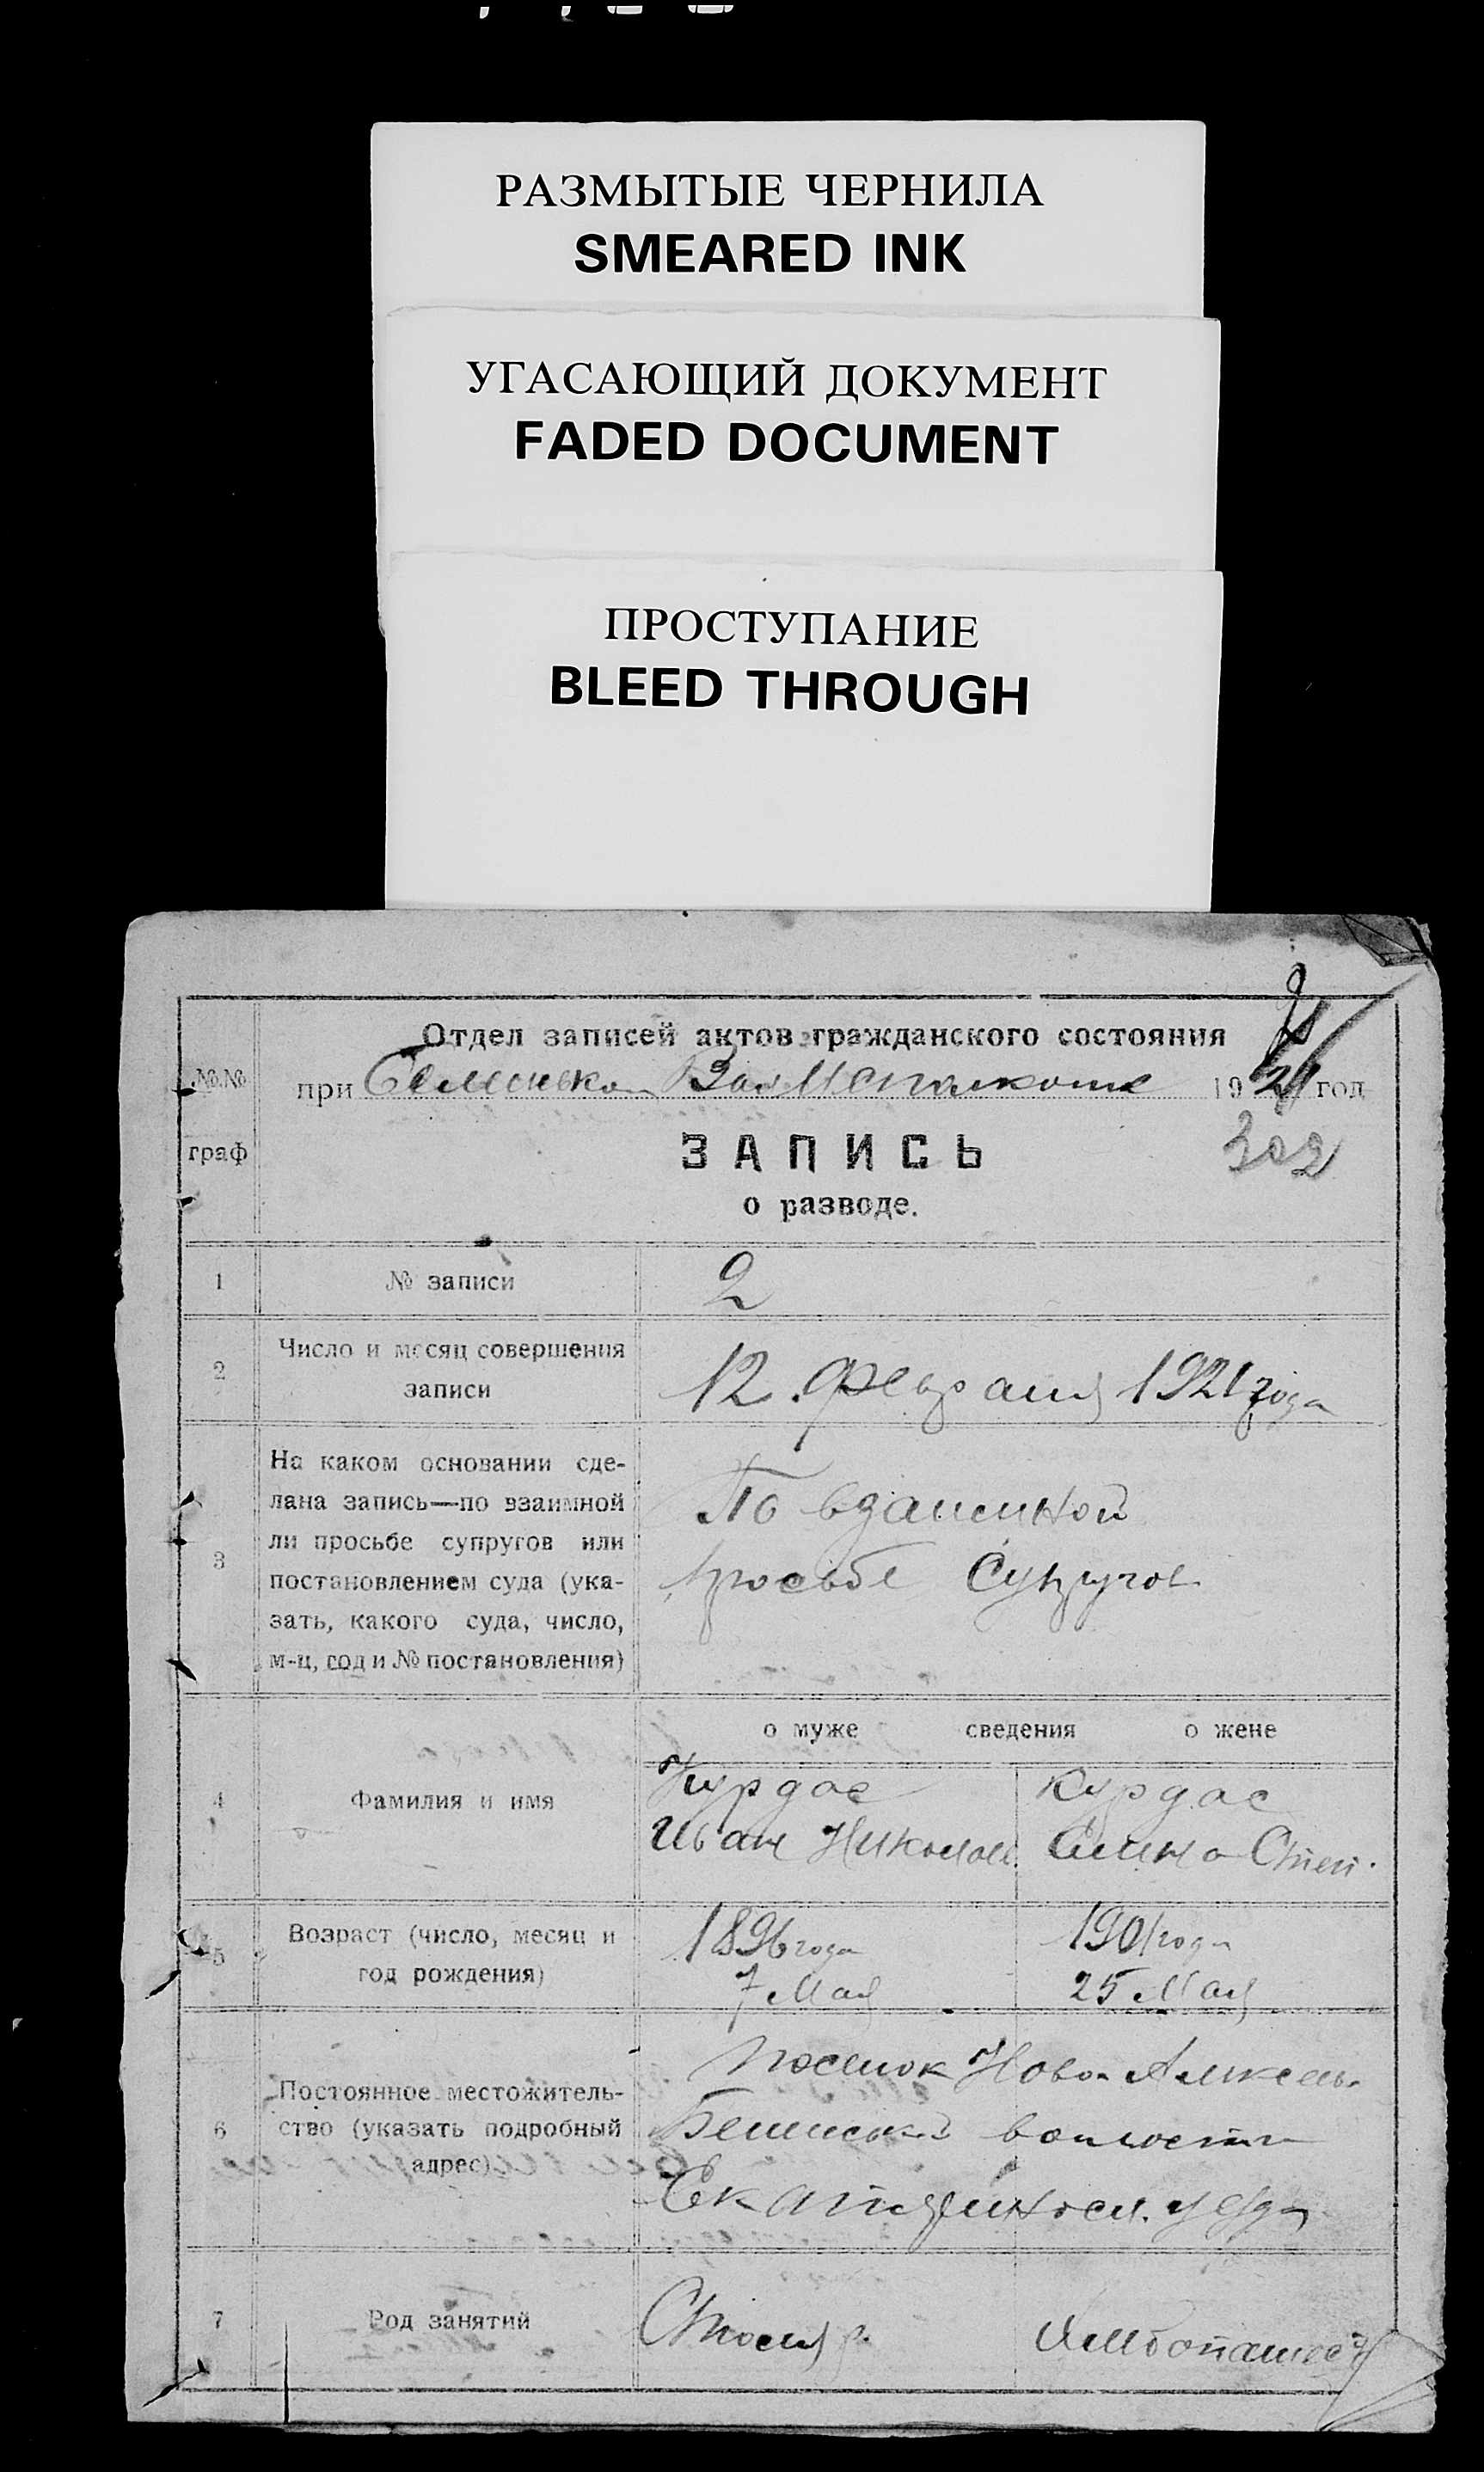 РАЗМЫТЫЕ ЧЕРНИЛА
SMEARED INK
УГАСАЮЩИЙ ДОКУМЕНТ
FADED DOCUMENT
ПРОСТУПАНИЕ
BLEED THROUGH
Отдел записей актов гражданского состояния
№№ граф
при 1921 год
302
ЗАПИСЬ
о разводе.
1 № записи 2
2 Число и месяц совершения
записи
12 февраля 1921 года
3 На каком основании сде-
лана запись—по взаимной
ли просьбе супругов или
постановлением суда (ука-
зать, какого суда, число,
м-ц, год и № постановления)
По взаимной
просьбе Супругов
о муже сведения о жене
4 Фамилия и имя
Курдас
Иван Николаев.
Курдас
Степ.
5 Возраст (число, месяц и
год рождения)
1896 года
7 Мая
1901 года
25 Мая
6 Постоянное местожитель-
ство (указать подробный
адрес)
поселок Ново-
волости
уезда
7 Род занятий
Столяр.